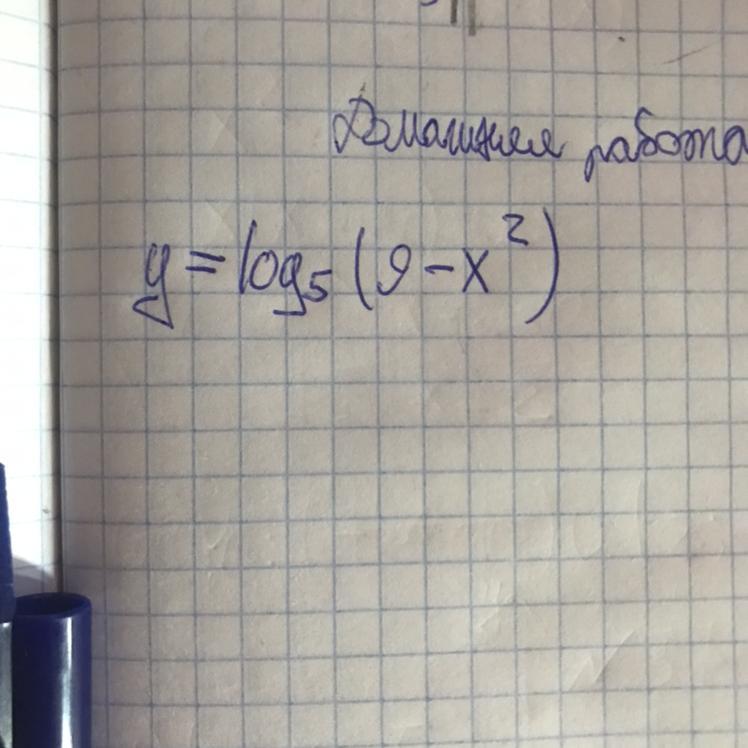 Домашняя работа
y = log₅ (9 - x²)